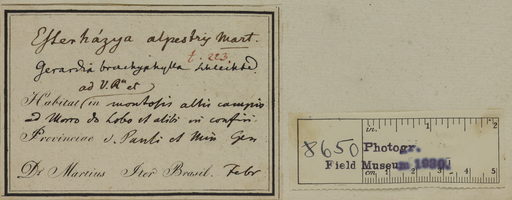 Esterházya alpestris Mart.
t. 223
Gerardia brachyphylla
ad V. Rª et
Habitat (in montosis altis campis
ad Morro do Lobo et alibi in confin.
Provinciae S. Pauli et Min Gen
Dr Martius Iter Brasil. Febr
in. 1 2
8650 Photogr.
Field Museum 1930.
cm 1 2 3 4 5